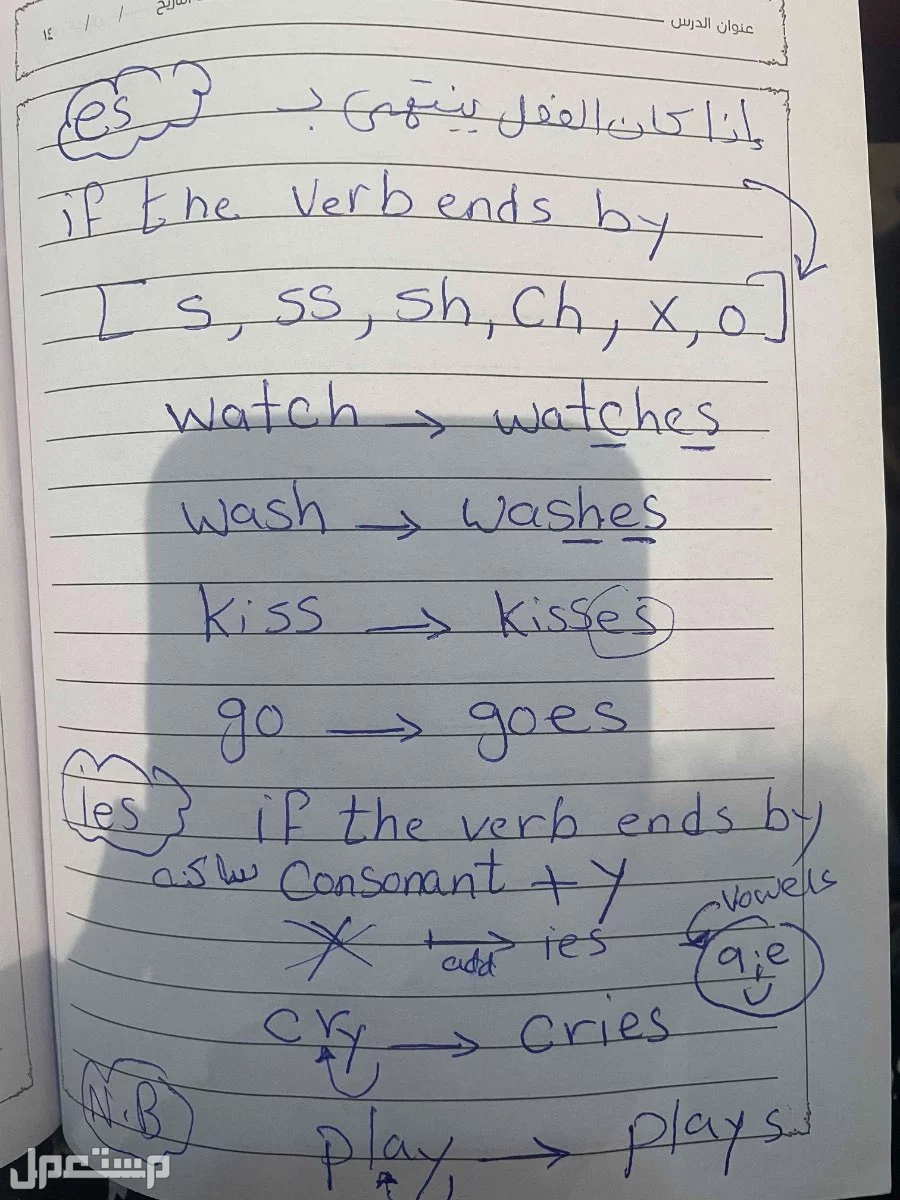 عنوان الدرس
التاريخ / / ١٤
إذا كان الفعل ينتهى بـ es
if the verb ends by
[ s, ss, sh, Ch, x, o ]
watch → watches
wash → washes
kiss → kisses
go → goes
ies if the verb ends by
ساكنه Consonant + y
vowels
y → add ies
a, e
cry → cries
N.B
play → plays
مستعمل